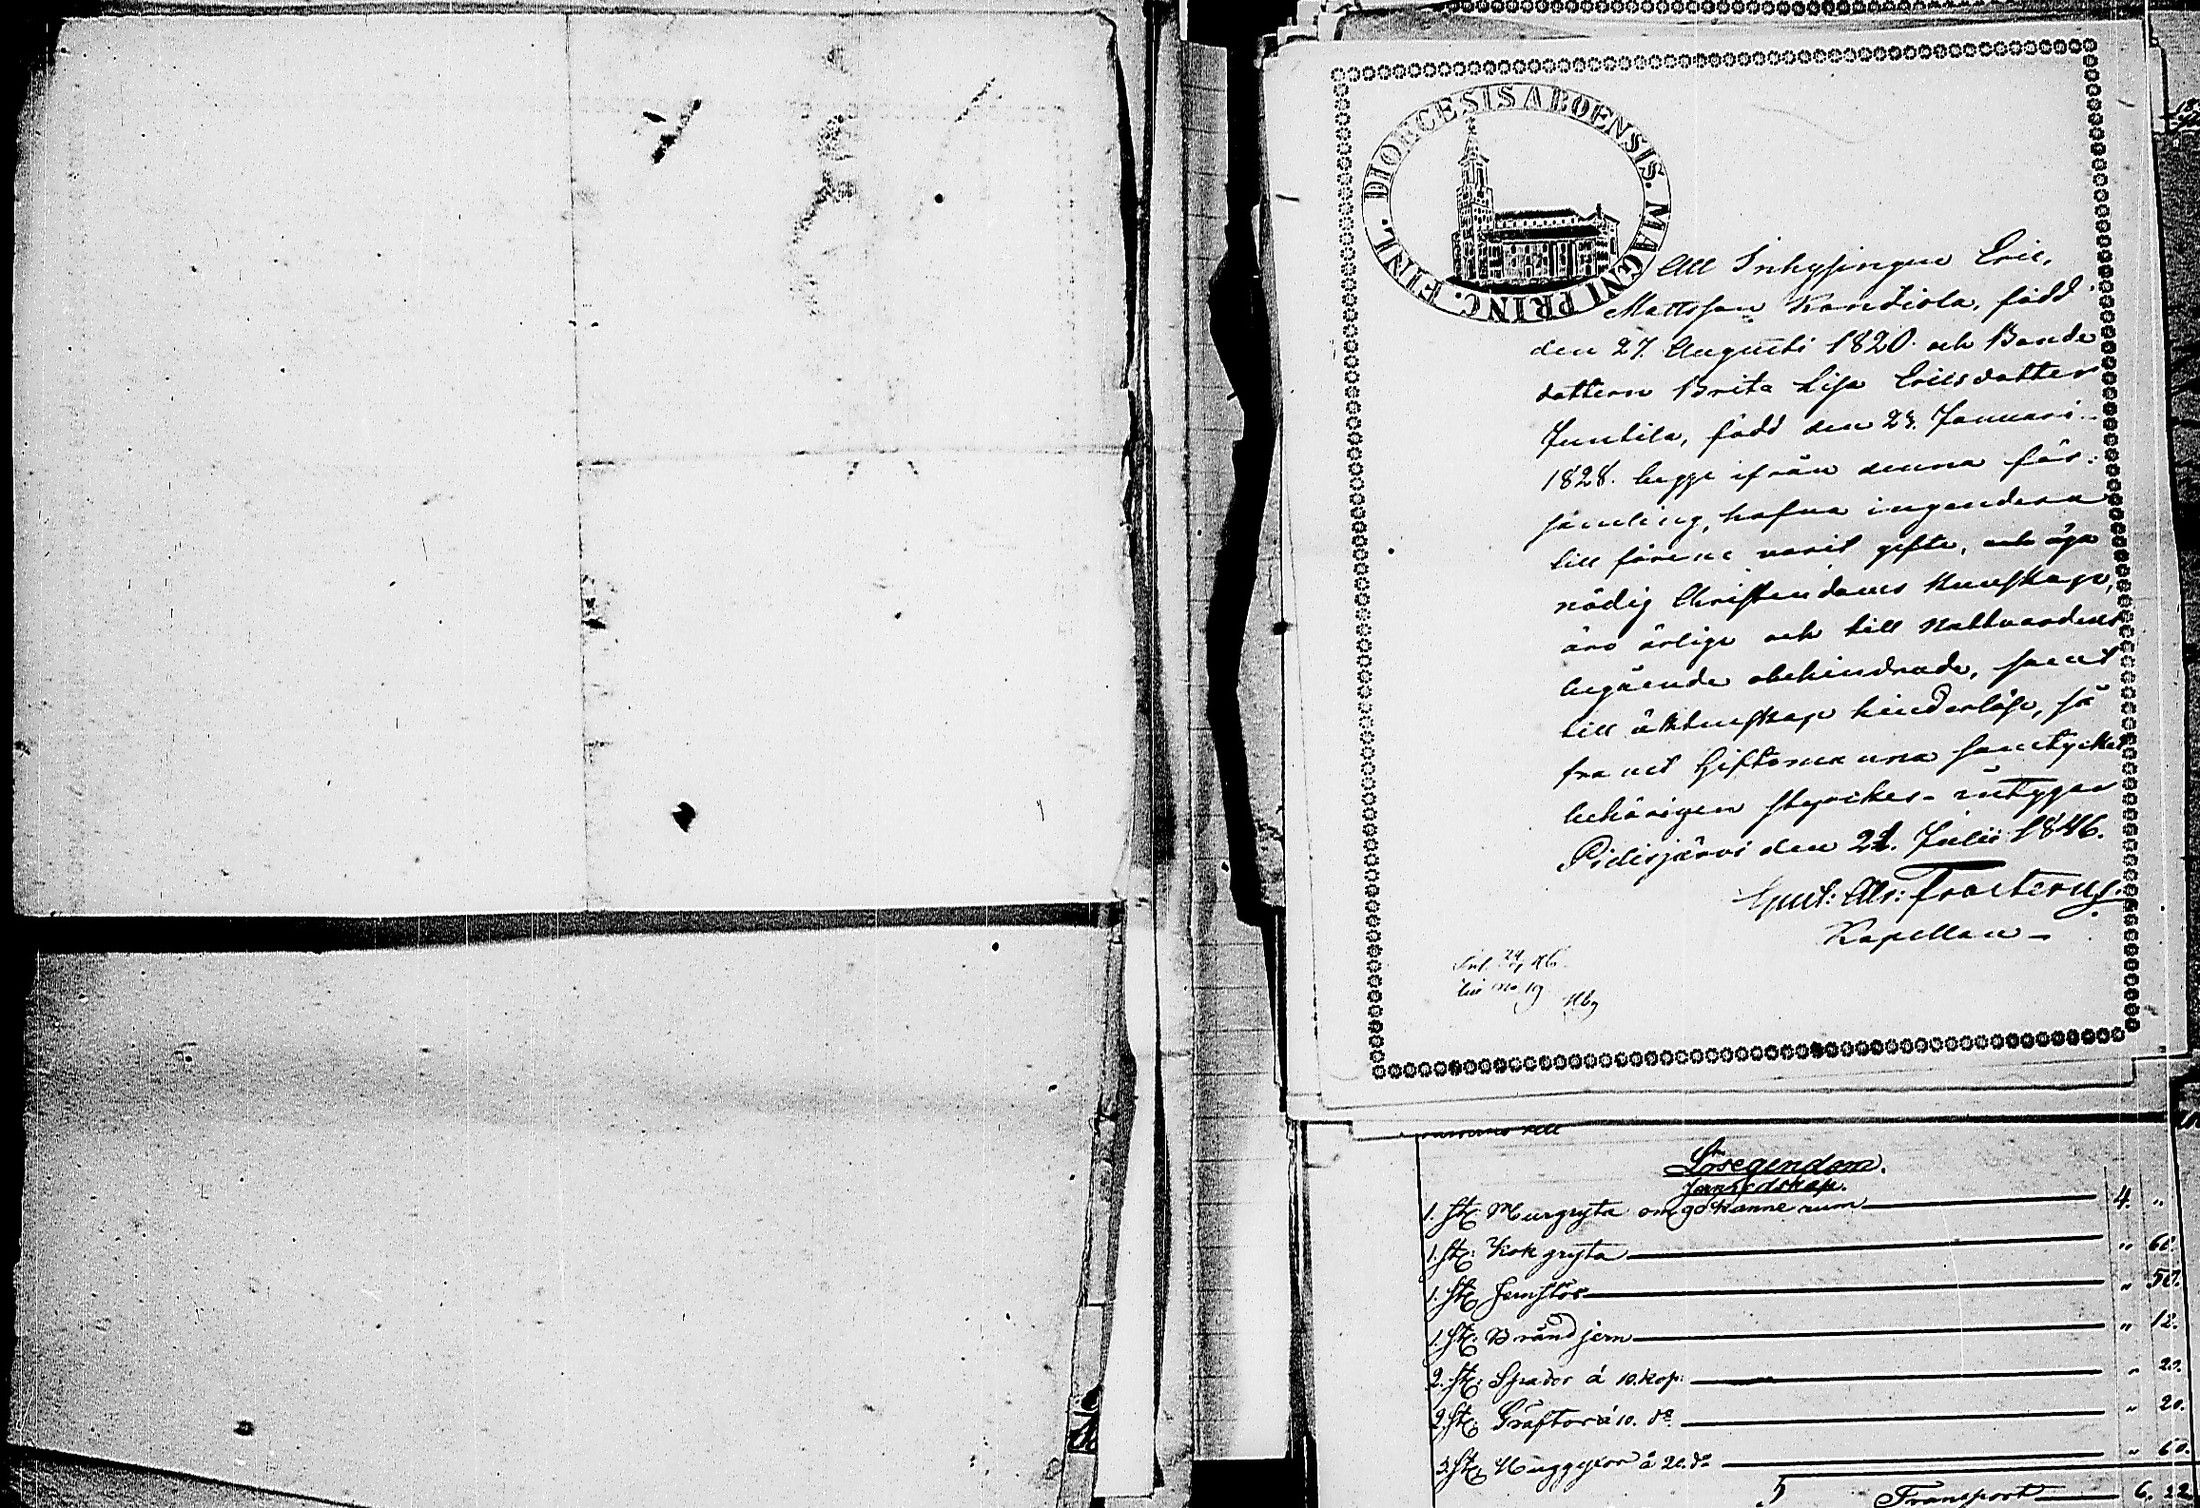 DIOECESIS ABOENSIS. MAGNI PRINC. FINL.
Att Inhysingen Eric
Mattsson Kandiola, född
den 27. Augusti 1820. och Bonde
dottern Brita Lisa Ericsdotter
Juntila, född den 23. Januari
1828. begge ifrån denna för-
samling, hafva ingendera
till förene varit gifte, och äga
nödig Christendoms kunskap,
äro ärlige och till Nattvardens
begående obehindrade, samt
till äktenskap hinderlöse, så
framt Giftomanna samtycket
behörigen styrkes - intygar
Pidisjärvi den 21. Julii 1846.
Gust: Alr: Frosterus.
Kapellan
46.
no 19
Lösegendom.
Jernredskap.
1. st. Murgryta om 90 kanne rum 4. "
1. st. Kok gryta " 60.
1. st. Jernstör " 50.
1. st. Brändjern " 12.
2. st. Spador á 10. kop: " 20.
2. st. Gräftor á 10. do " 20.
3. st. Huggyxor á 20. do " 60.
Transport 6. 22